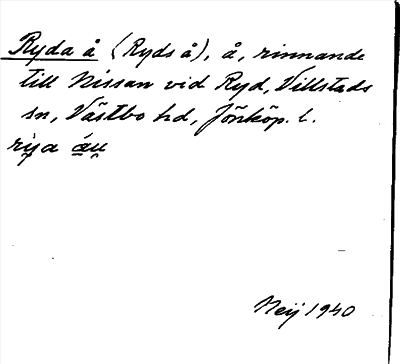 Ryda å (Ryds å), å, rinnande
till Nissan vid Ryd, Villstads
sn, Västbo hd, Jönköp. l.
Neij 1940